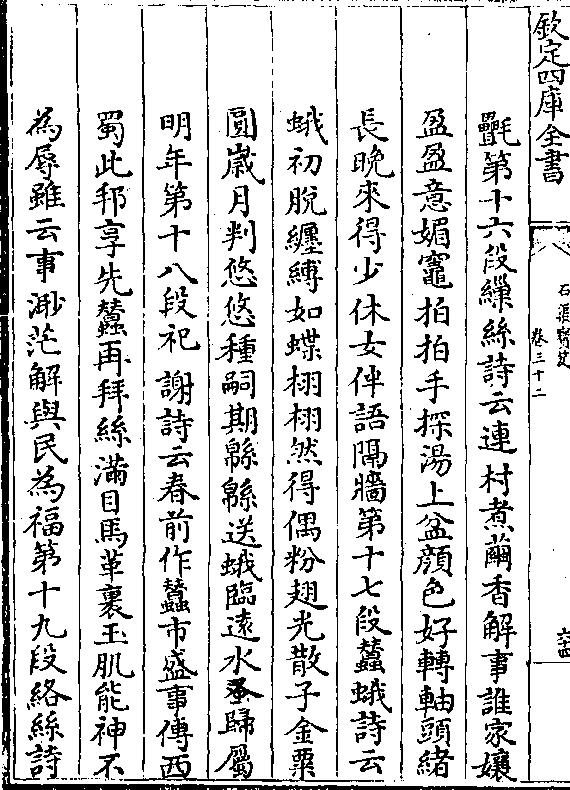 欽定四庫全書
石渠寶笈
卷三十二
六十四
氎第十六段繅絲詩云連村煮繭香解事誰家孃
盈盈意媚竈拍拍手探湯上盆顔色好轉軸頭緒
長晚來得少休女伴語隔牆第十七段蠶蛾詩云
蛾初脫纏縛如蝶栩栩然得偶粉翅光散子金粟
圓嵗月判悠悠種嗣期緜緜送蛾臨遠水蚤歸屬
明年第十八段祀謝詩云春前作蠶市盛事傳西
蜀此邦享先蠶再拜絲滿目馬革裹玉肌能神不
為辱雖云事渺茫解與民為福第十九段絡絲詩